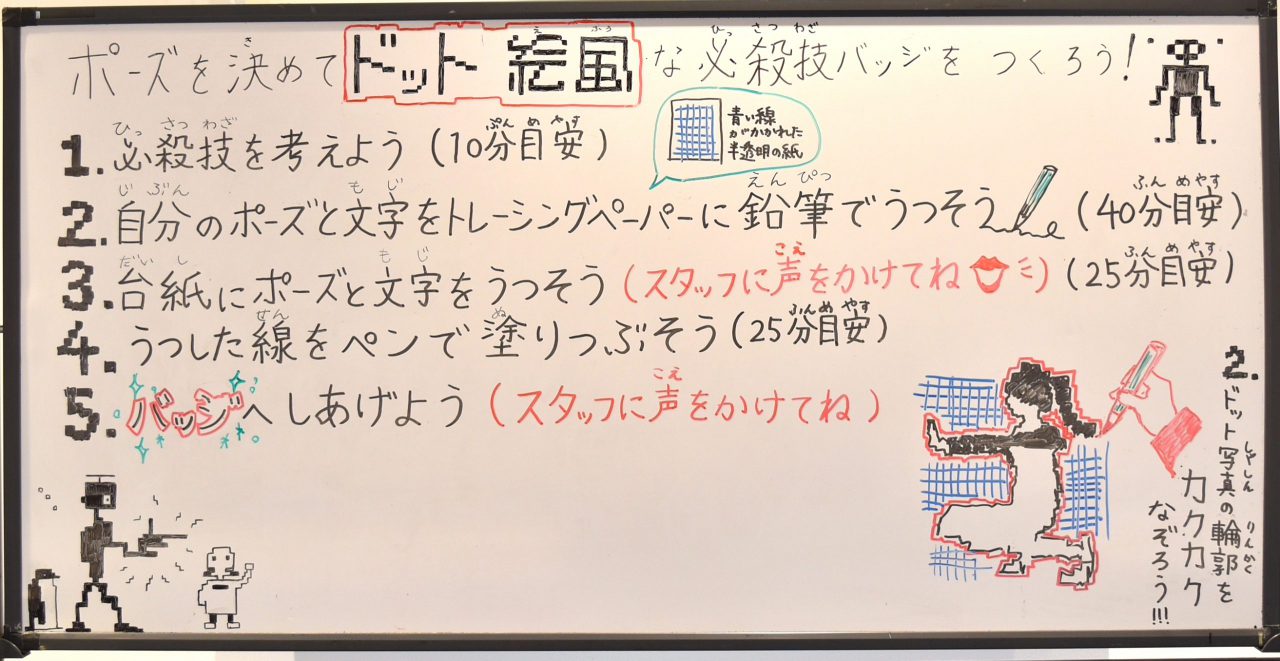 ポーズを決めてドット絵風な必殺技バッジをつくろう!
青い線
がかかれた
半透明の紙
1. 必殺技を考えよう (10分目安)
2. 自分のポーズと文字をトレーシングペーパーに鉛筆でうつそう (40分目安)
3. 台紙にポーズと文字をうつそう (スタッフに声をかけてね) (25分目安)
4. うつした線をペンで塗りつぶそう (25分目安)
5. バッジへしあげよう (スタッフに声をかけてね)
2. ドット写真の輪郭を
カクカク
なぞろう!!!